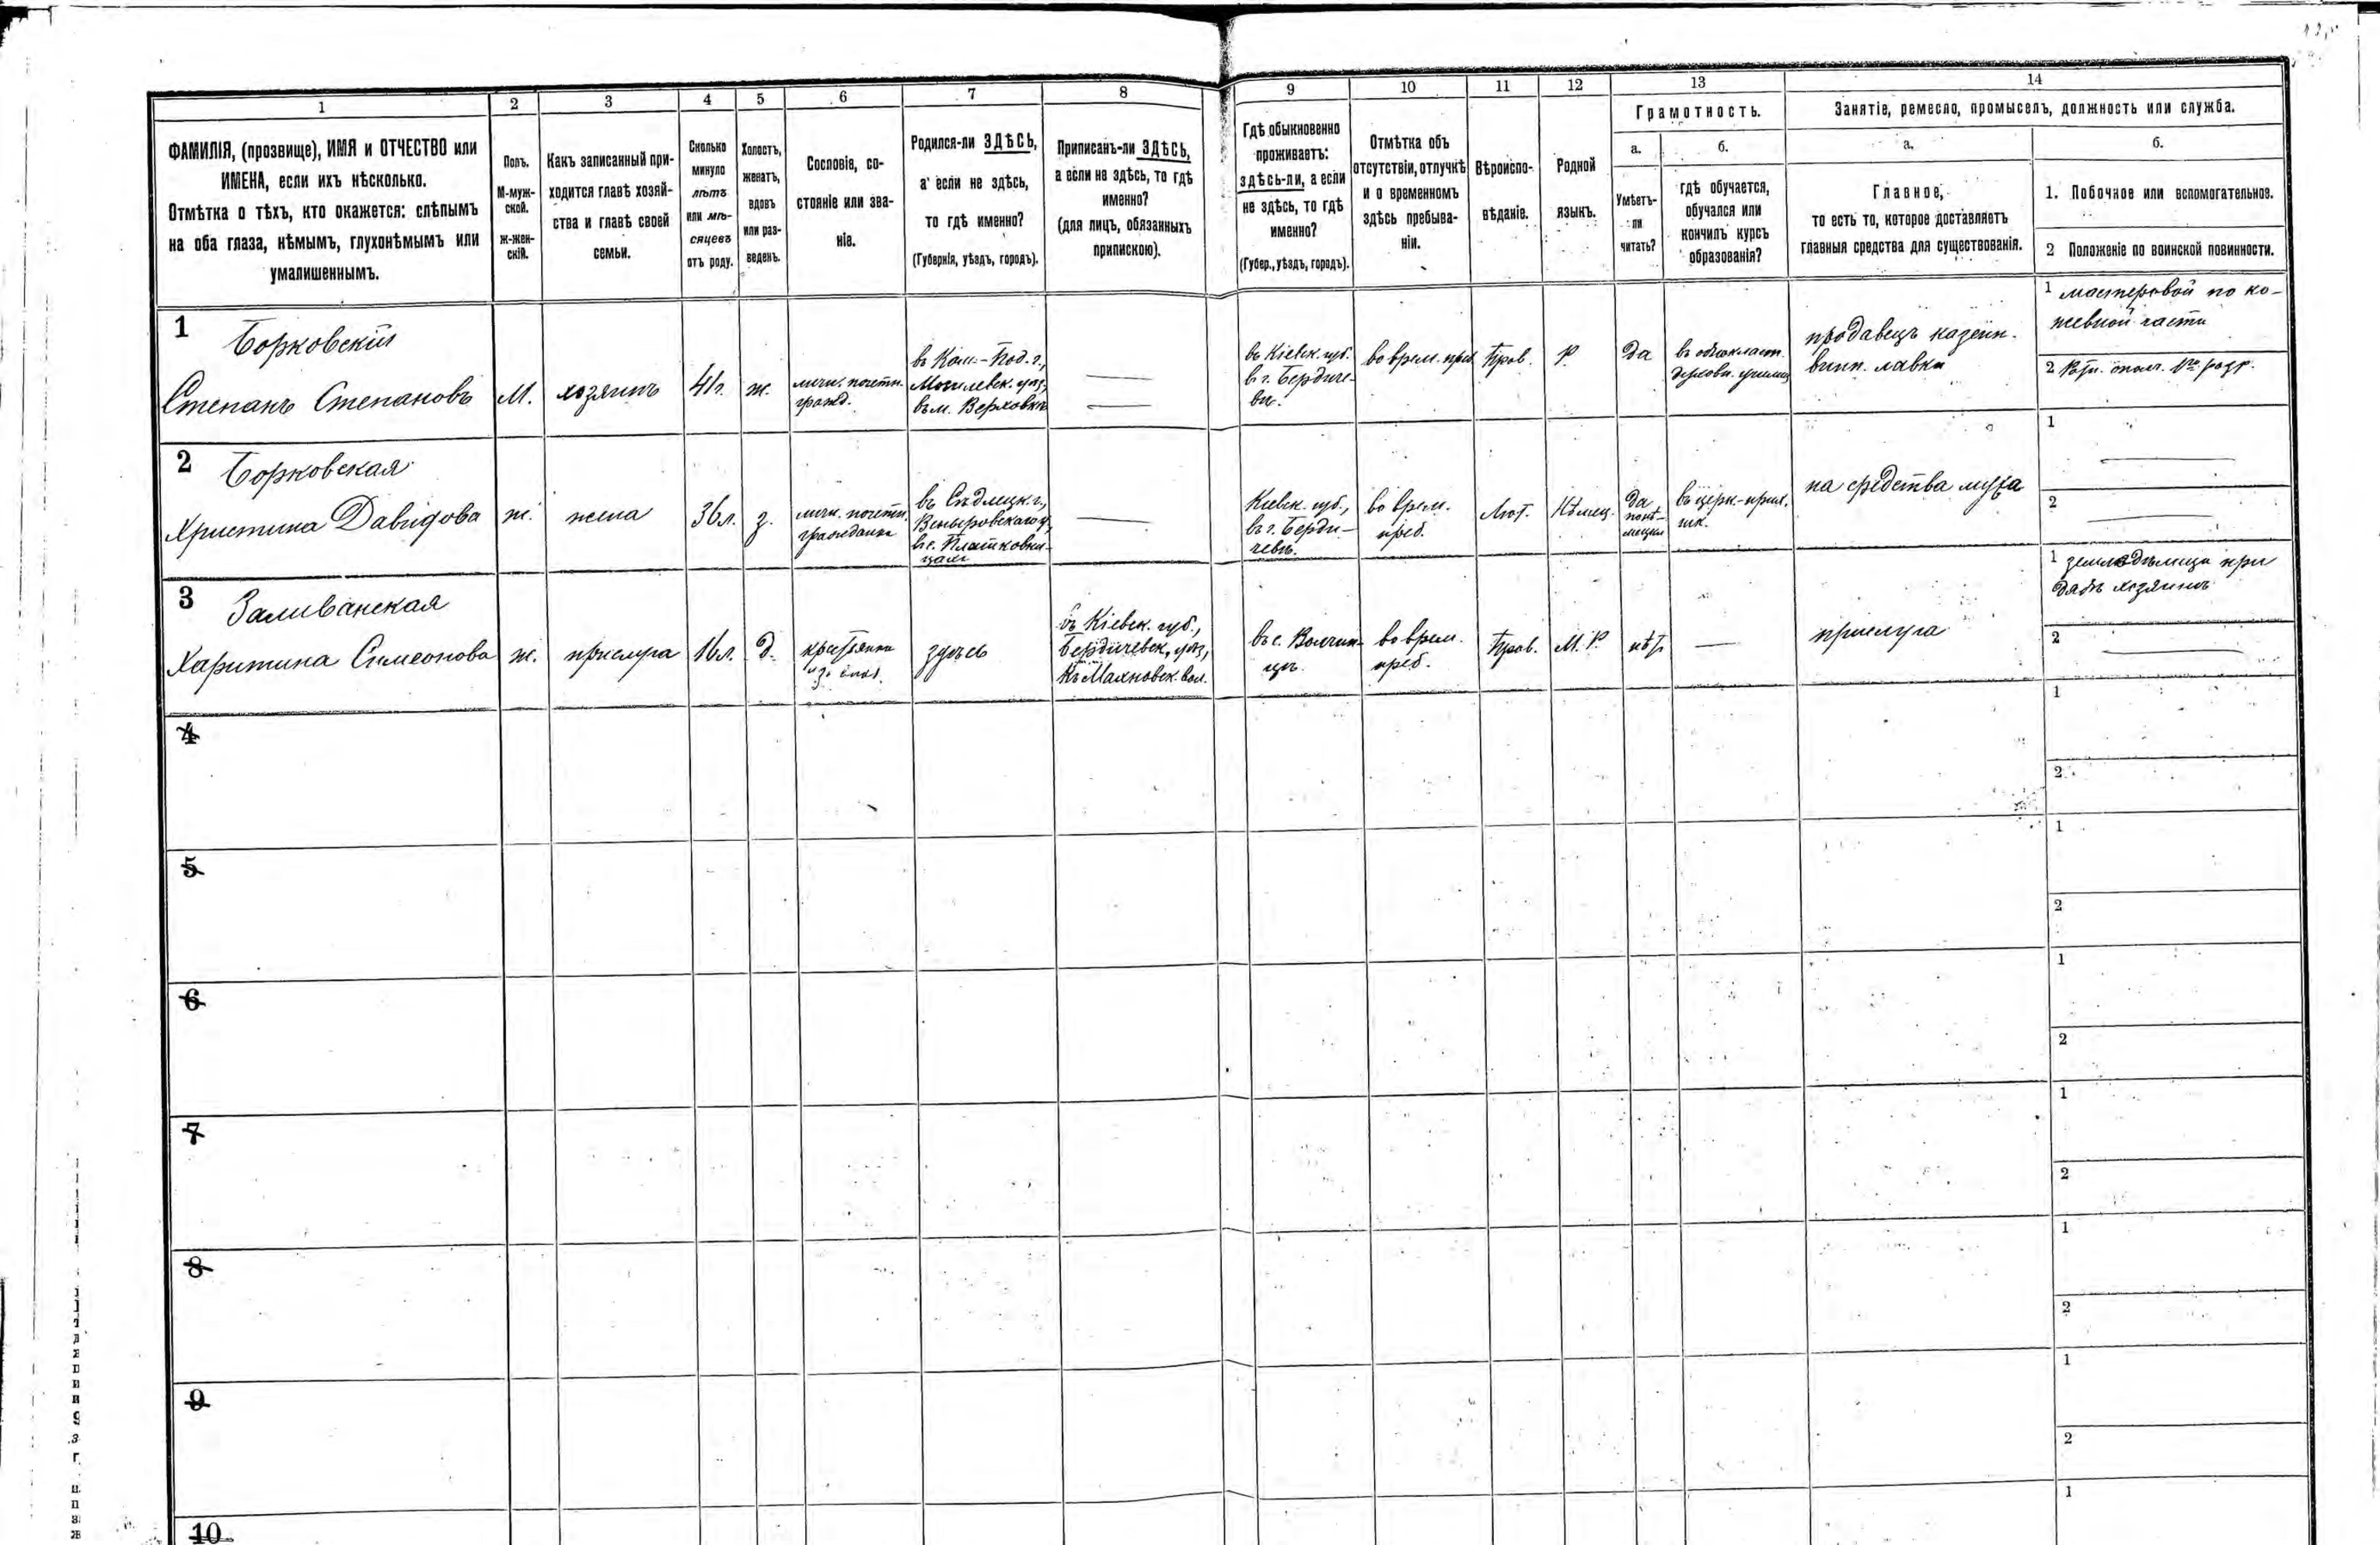 1
2
3
4
5
6
7
8
9
10
11
12
13
14
ФАМИЛІЯ, (прозвище), ИМЯ и ОТЧЕСТВО или
ИМЕНА, если ихъ нѣсколько.
Отмѣтка о тѣхъ, кто окажется: слѣпымъ
на оба глаза, нѣмымъ, глухонѣмымъ или
умалишеннымъ.
Полъ.
М-муж-
ской.
Ж-жен-
скій.
Какъ записанный при-
ходится главѣ хозяй-
ства и главѣ своей
семьи.
Сколько
минуло
лѣтъ
или мѣ-
сяцевъ
отъ роду.
Холостъ,
женатъ,
вдовъ
или раз-
веденъ.
Сословіе, со-
стояніе или зва-
ніе.
Родился-ли ЗДѢСЬ,
а если не здѣсь,
то гдѣ именно?
(Губернія, уѣздъ, городъ).
Приписанъ-ли ЗДѢСЬ,
а если не здѣсь, то гдѣ
именно?
(для лицъ, обязанныхъ
припискою).
Гдѣ обыкновенно
проживаетъ:
здѣсь-ли, а если
не здѣсь, то гдѣ
именно?
(Губер., уѣздъ, городъ).
Отмѣтка объ
отсутствіи, отлучкѣ
и о временномъ
здѣсь пребыва-
ніи.
Вѣроиспо-
вѣданіе.
Родной
языкъ.
Грамотность.
а.
Умѣетъ-
ли
читать?
б.
гдѣ обучается,
обучался или
кончилъ курсъ
образованія?
Занятіе, ремесло, промыселъ, должность или служба.
а.
Главное,
то есть то, которое доставляетъ
главныя средства для существованія.
б.
1. Побочное или вспомогательное.
2 Положеніе по воинской повинности.
1
Борковскій
Степанъ Степановъ
М.
хозяинъ
41г.
ж.
личн. почетн.
гражд.
въ Кам.-Под. г.,
Могилевск. уѣз,
въ м. Верховкѣ
въ Кіевск. губ.
в г. Бердиче-
вѣ.
во врем. преб.
Прав.
Р.
Да
продавецъ казенн.
винн. лавки
1 мастеровой по ко-
жевной части
2
2
Борковская
Христина Давидова
ж.
жена
36л.
з.
личн. почетн.
гражданка
въ Сѣдлецк. г.,
Кіевск. губ.,
въ г. Берди-
чевѣ.
во врем.
преб.
Лют.
Нѣмец.
Да
понѣ-
мецки
въ церк.-прих.
шк.
на средства мужа
1
2
3
Заливанская
Харитина Симеонова
ж.
прислуга
16л.
д.
крестьянка
здѣсь
въ Кіевск. губ.,
Бердичевск, уѣз,
къ Махновск. вол.
въ с. Волчин-
цѣ.
во врем.
преб.
Прав.
М. Р.
нѣт
прислуга
1 земледѣлица при
дядѣ хозяинѣ
2
4
1
2
5
1
2
6
1
2
7
1
2
8
1
2
9
1
2
10
1